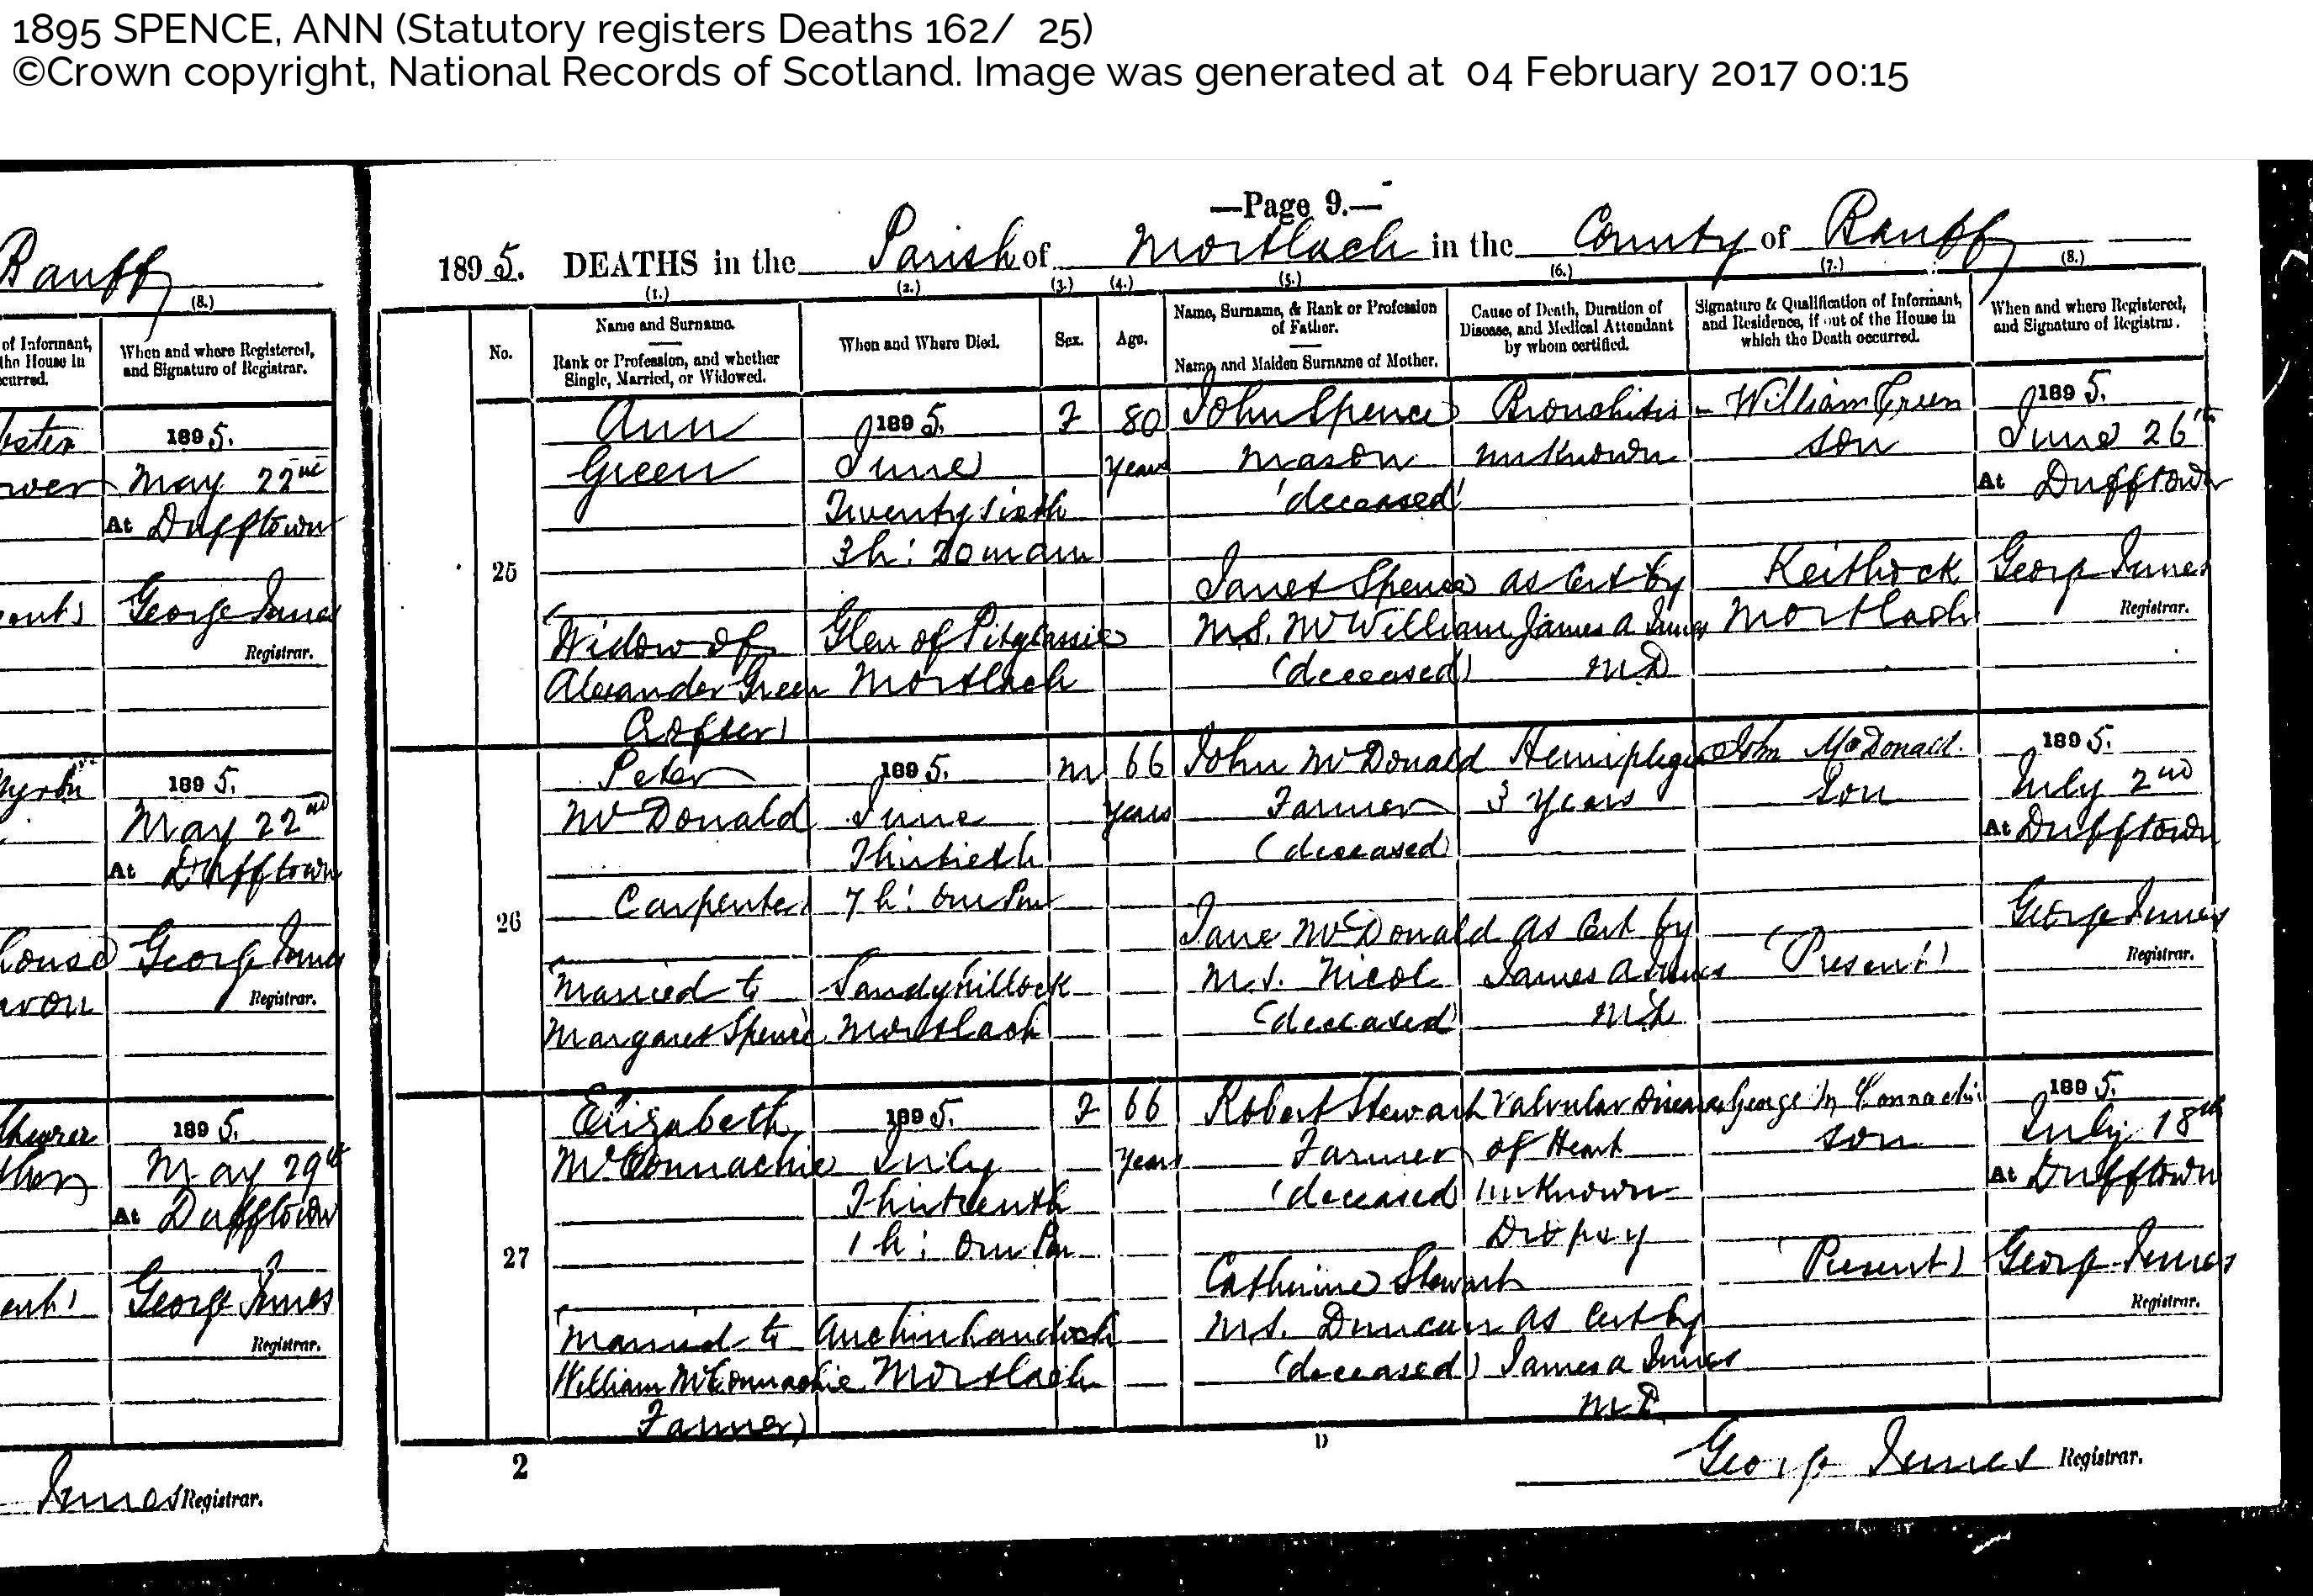 1895 SPENCE, ANN (Statutory registers Deaths 162/ 25)
©Crown copyright, National Records of Scotland. Image was generated at 04 February 2017 00:15
—Page 9.—
1895. DEATHS in the Parish of Mortlach in the County of Banff
(1.) (2.) (3.) (4.) (5.) (6.) (7.) (8.)
No.
Name and Surname.
Rank or Profession, and whether
Single, Married, or Widowed.
When and Where Died.
Sex.
Age.
Name, Surname, & Rank or Profession
of Father.
Name, and Maiden Surname of Mother.
Cause of Death, Duration of
Disease, and Medical Attendant
by whom certified.
Signature & Qualification of Informant,
and Residence, if out of the House in
which the Death occurred.
When and where Registered,
and Signature of Registrar.
25
Ann
Green
(Widow of
Alexander Green
Crofter)
1895.
June
Twenty sixth
3h: 20m am
Glen of Pitglassie
Mortlach
F
80
years
John Spence
Mason
(deceased)
Janet Spence
M.S. McWilliam
(deceased)
Bronchitis
unknown
As Cert by
James A Innes
M.D
William Green
son
Keithock
Mortlach
1895.
June 26th
At Dufftown
George Innes
Registrar.
26
Peter
McDonald
Carpenter
(Married to
Margaret Spence
1895.
June
Thirtieth
7h: 0m Pm
Sandyhillock
Mortlach
M
66
years
John McDonald
Farmer
(deceased)
Jane McDonald
M.S. Nicol
(deceased)
Hemiplegia
3 Years
As Cert by
James A Innes
M.D
John McDonald.
Son
(Present)
1895.
July 2nd
At Dufftown
George Innes
Registrar.
27
Elizabeth
McConnachie
(Married to
William McConnachie
Farmer)
1895.
July
Thirteenth
1h: 0m Pm
Auchinhandoch
Mortlach
F
66
years
Robert Stewart
Farmer
(deceased)
Catherine Stewart
M.S. Duncan
(deceased)
Valvular Disease
of Heart
unknown
Dropsy
As Cert by
James A Innes
M.D
George McConnachie
son
(Present)
1895.
July 18th
At Dufftown
George Innes
Registrar.
2
George Innes Registrar.
Banff
(8.)
of Informant,
the House in
curred.
When and where Registered,
and Signature of Registrar.
1895.
May 22nd
At Dufftown
George Innes
Registrar.
1895.
May 22nd
At Dufftown
George Innes
Registrar.
1895.
May 29th
At Dufftown
George Innes
Registrar.
Innes Registrar.